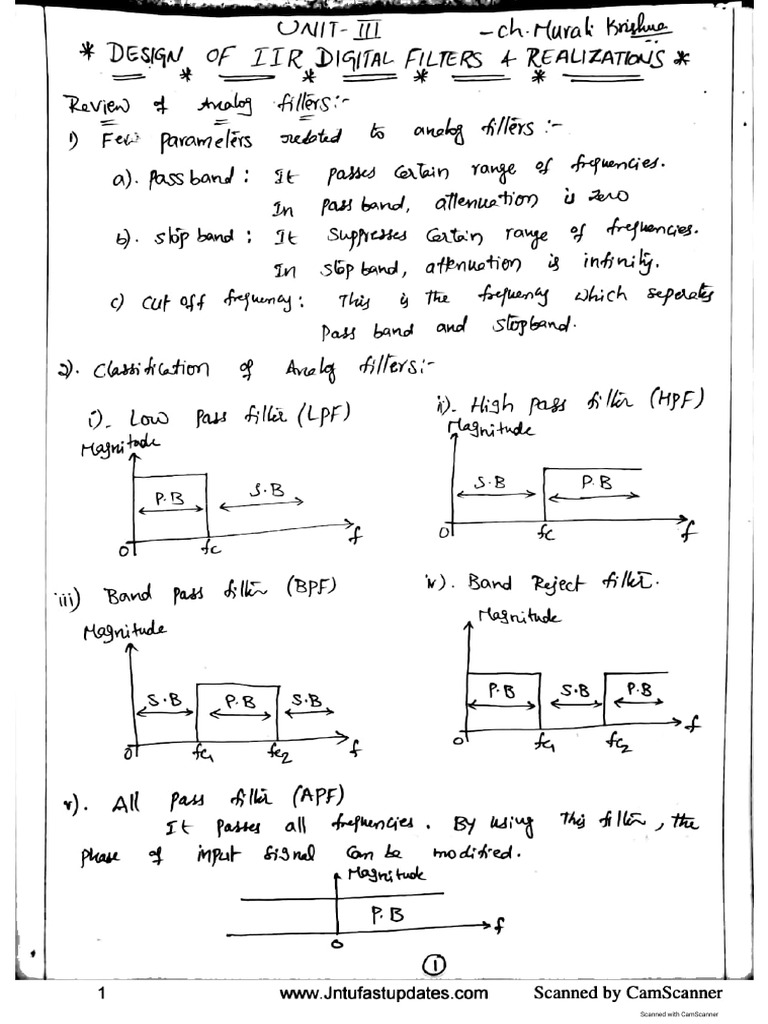 UNIT-III
-ch. Murali Krishna
* DESIGN OF IIR DIGITAL FILTERS & REALIZATIONS *
Review of Analog filters:-
1) Few parameters related to analog filters:-
a). Pass band: It passes certain range of frequencies.
In pass band, attenuation is zero
b). stop band: It suppresses certain range of frequencies.
In stop band, attenuation is infinity.
c) cut off frequency: This is the frequency which seperates
pass band and stopband.
2). Classification of Analog filters:-
i). Low pass filter (LPF)
Magnitude
P.B
S.B
0
fc
f
ii). High pass filter (HPF)
Magnitude
S.B
P.B
0
fc
f
iii) Band pass filter (BPF)
Magnitude
S.B
P.B
S.B
0
fc1
fc2
f
iv). Band Reject filter.
Magnitude
P.B
S.B
P.B
0
fc1
fc2
f
v). All pass filter (APF)
It passes all frequencies. By using this filter, the
phase of input signal can be modified.
Magnitude
P.B
f
0
1
1
www.Jntufastupdates.com
Scanned by CamScanner
Scanned with CamScanner